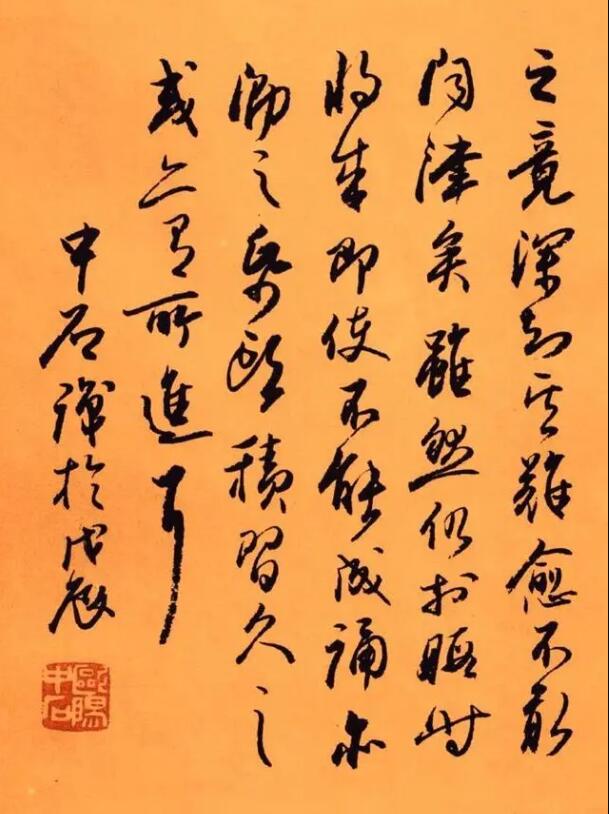 之竟深知其難愈不敢
問津矣雖然仍於暇時
將來即使不能成誦亦
之積習久之
或亦有所進耳
中石識於戊辰
歐陽中石